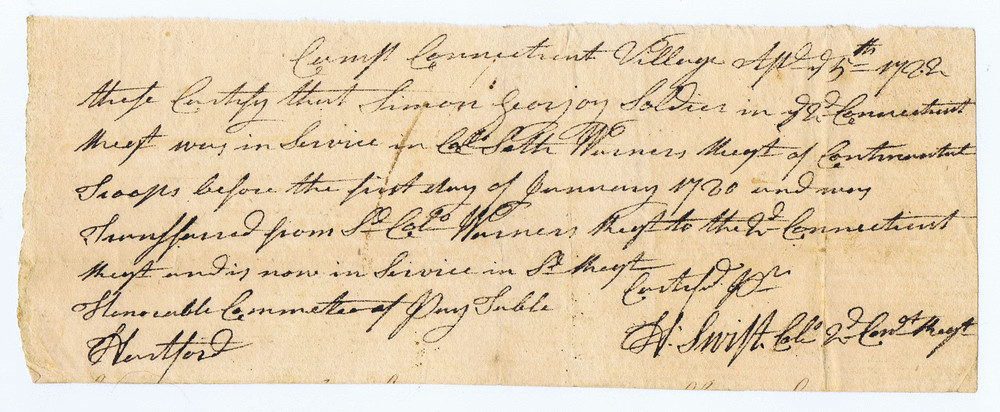 Camp Connecticut Village Apl ye 5th 1782
these Certify that Simon Georjoy Soldier in ye 2d Connecticut
Regt was in Service in Colo Seth Warners Regt of Continental
Troops before the first day of January 1780 and was
Transffarred from Sd Colo Warners Regt to the 2d Connecticut
Regt and is now in Service in Sd Regt
Certifd Pr
Honorable Committee of Pay Table
H. Swift Colo 2d Cont Regt
Hartford